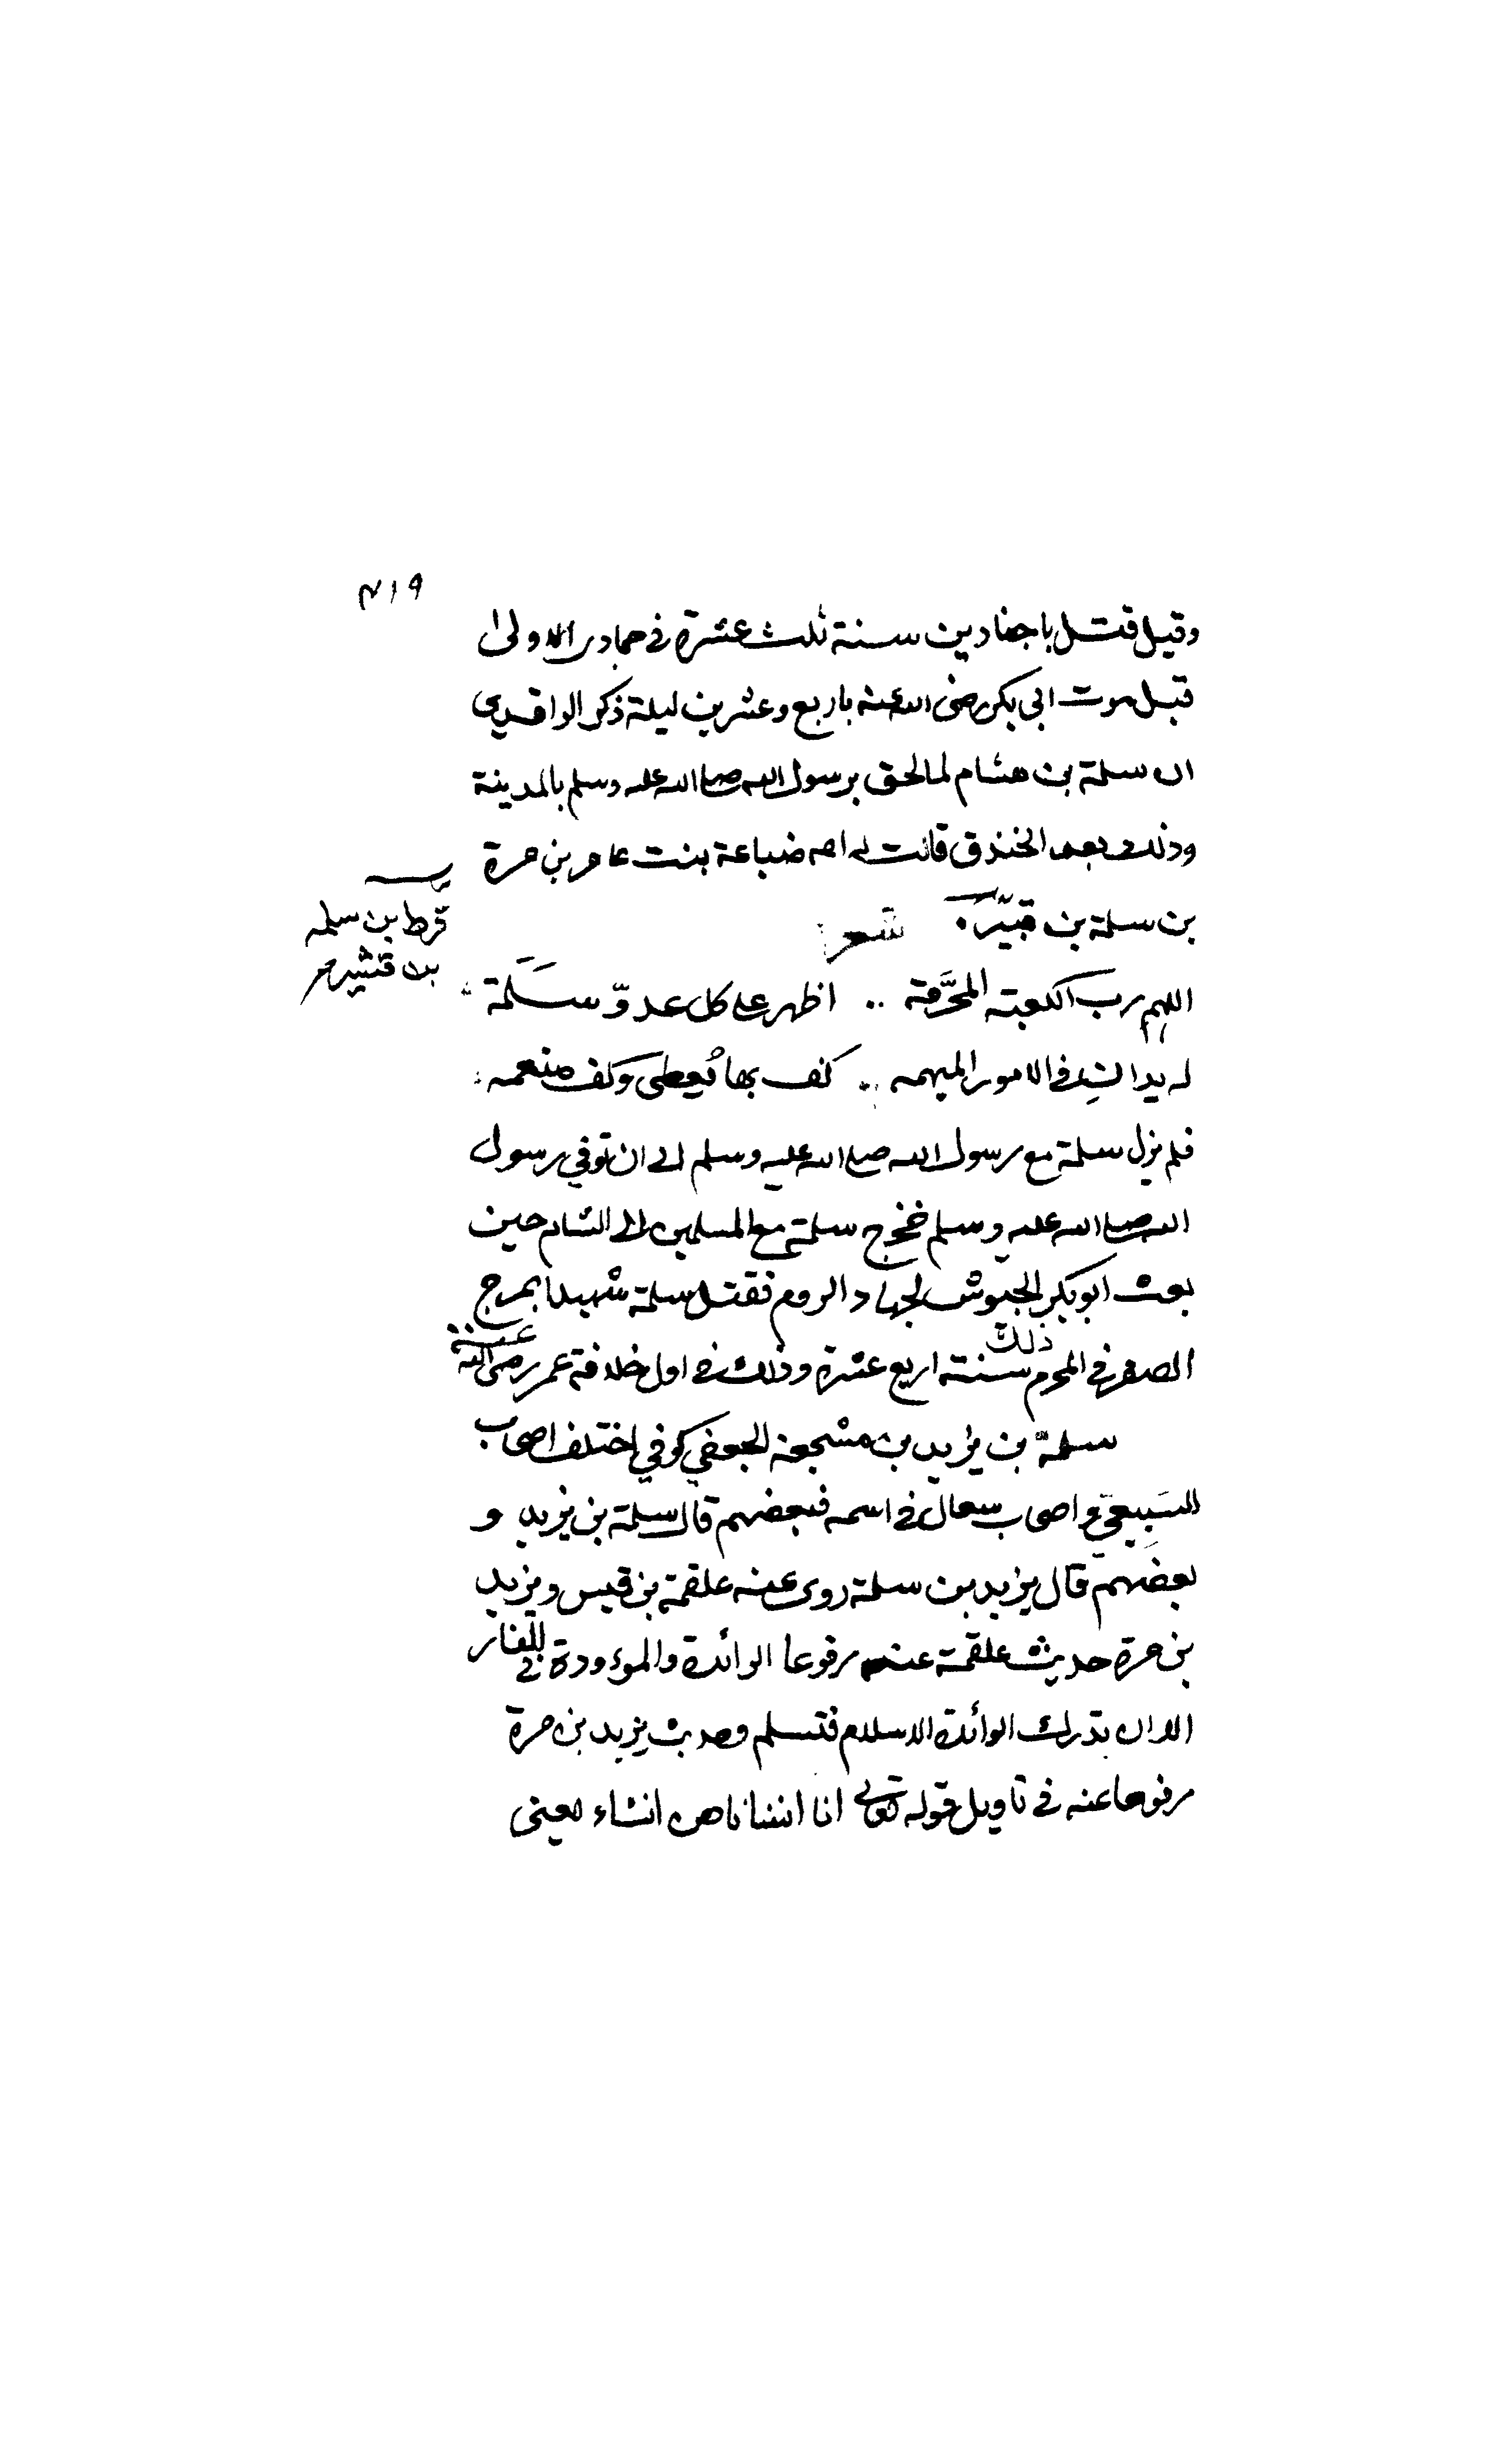 ٤١٩
وقيل قتل باجنادين سنة ثلث عشرة في جمادى الاولى
قبل موت ابي بكر رضى الله عنه باربع وعشرين ليلة ذكر الواقدي
ان سلمة بن هشام لما لحق برسول الله صلى الله عليه وسلم بالمدينة
وذلك بعد الخندق قالت له امه ضباعة بنت عامر بن
بن سلمة بن شعر
قرط بن سلمه
بن قشير
اللهم رب الكعبة المحرَّمة ∴ اظهر على كل عدوّ سَلَمَة
له يدان في الامور المبهمه ∴ كف بها يُعطى وكف منعمه
فلم يزل سلمة مع رسول الله صلى الله عليه وسلم الى ان توفي رسول
الله صلى الله عليه وسلم فخرج سلمة مع المسلمين الى الشام حين
بعث ابو بكر الجيوش لجهاد الروم فقتل سلمة شهيدا بمرج
الصفر في المحرم سنة اربع عشرة وذلك في اول خلافة عمر رضى الله عنه
ذلك
سلمة بن يزيد بن مشجعة الجعفي كوفي اختلف اصحاب
السَبِيعيّ واصحاب سماك في اسمه فبعضهم قال سلمة بن يزيد و
بعضهم قال يزيد بن سلمة روى عنه علقمة بن قيس ويزيد
بن مرة حديث علقمة عنه مرفوعا الوائدة والموءودة في النار
الا ان تدرك الوائدة الاسلام فتسلم وحديث يزيد بن مرة
مرفوعا عنه في تاويل قوله تعالى انا انشاناهن انشاء يعنى